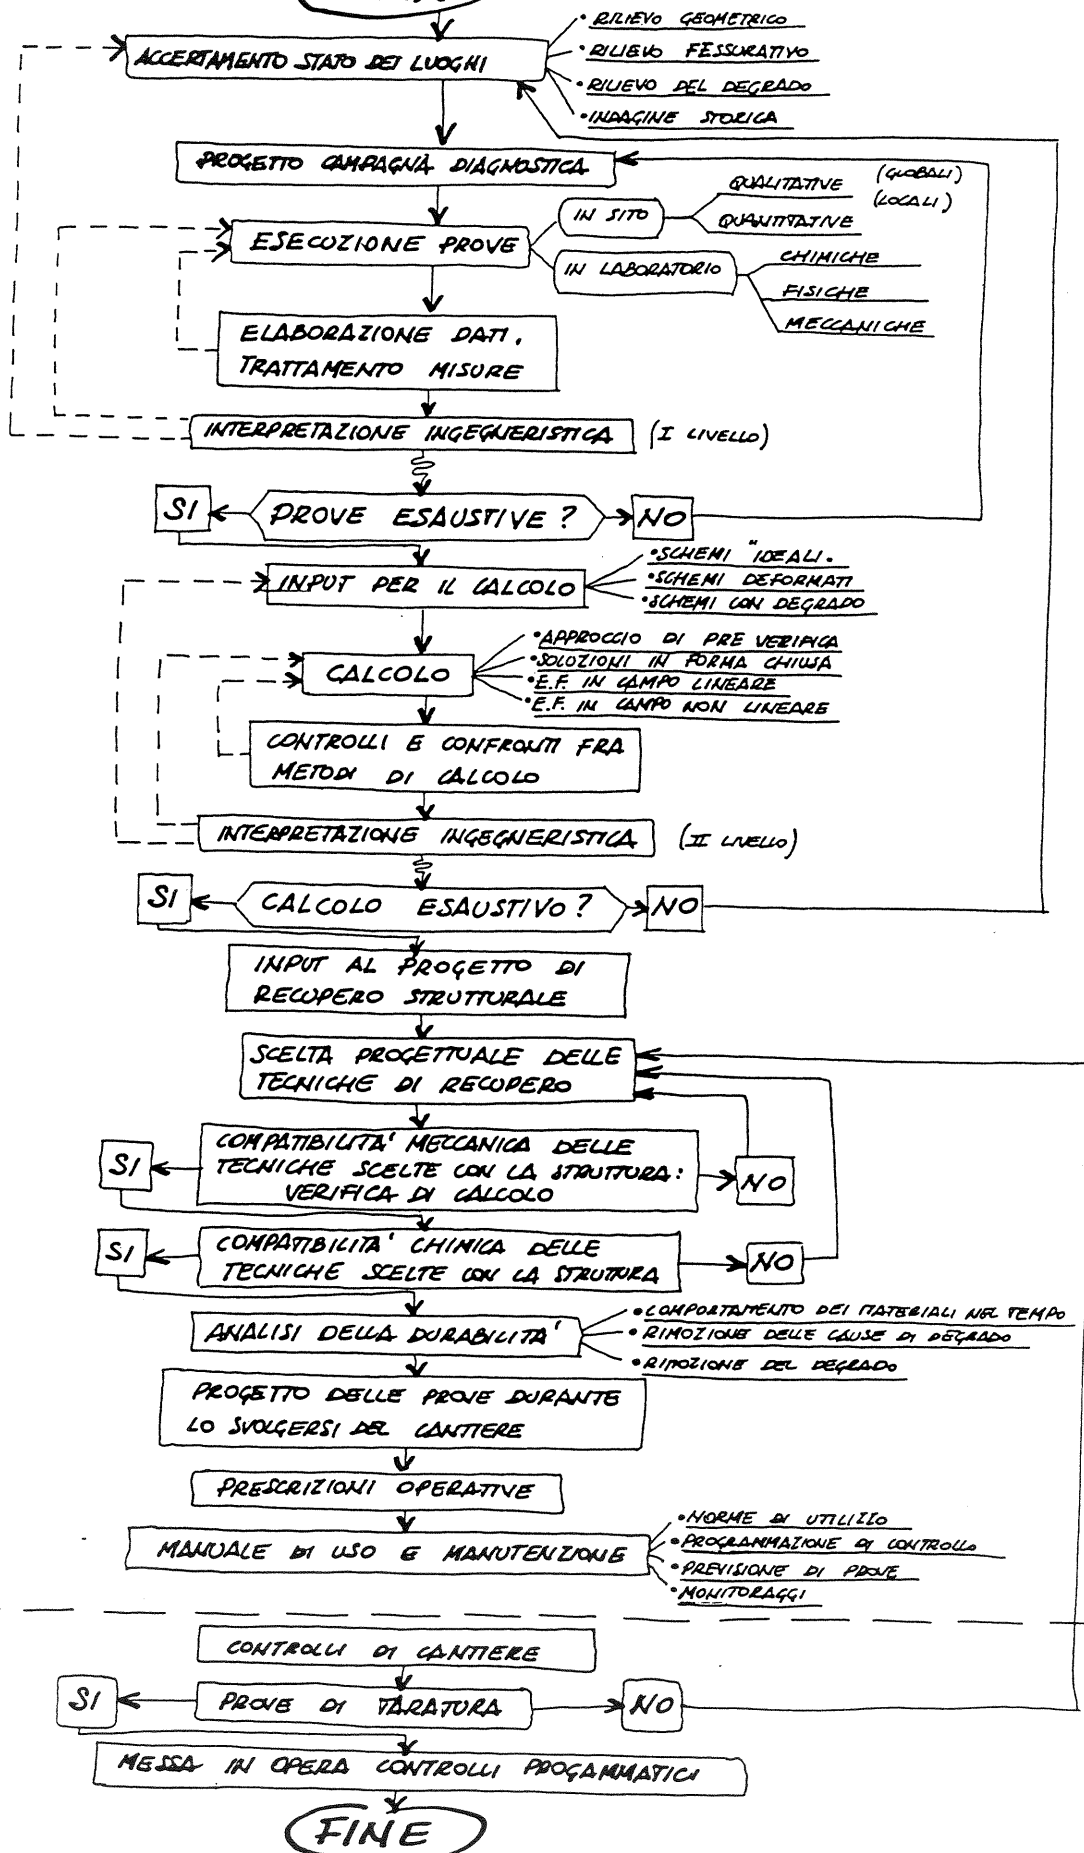 • RILIEVO GEOMETRICO
ACCERTAMENTO STATO DEI LUOGHI
• RILIEVO FESSURATIVO
• RILIEVO DEL DEGRADO
• INDAGINE STORICA
PROGETTO CAMPAGNA DIAGNOSTICA
QUALITATIVE (GLOBALI)
IN SITO
QUANTITATIVE (LOCALI)
ESECUZIONE PROVE
IN LABORATORIO
CHIMICHE
FISICHE
MECCANICHE
ELABORAZIONE DATI.
TRATTAMENTO MISURE
INTERPRETAZIONE INGEGNERISTICA (I LIVELLO)
SI PROVE ESAUSTIVE? NO
INPUT PER IL CALCOLO
• SCHEMI "IDEALI.
• SCHEMI DEFORMATI
• SCHEMI CON DEGRADO
CALCOLO
• APPROCCIO DI PRE VERIFICA
• SOLUZIONI IN FORMA CHIUSA
• E.F. IN CAMPO LINEARE
• E.F. IN CAMPO NON LINEARE
CONTROLLI E CONFRONTI FRA
METODI DI CALCOLO
INTERPRETAZIONE INGEGNERISTICA (II LIVELLO)
SI CALCOLO ESAUSTIVO? NO
INPUT AL PROGETTO DI
RECUPERO STRUTTURALE
SCELTA PROGETTUALE DELLE
TECNICHE DI RECUPERO
COMPATIBILITA' MECCANICA DELLE
SI TECNICHE SCELTE CON LA STRUTTURA: NO
VERIFICA DI CALCOLO
COMPATIBILITA' CHIMICA DELLE
SI TECNICHE SCELTE CON LA STRUTTURA NO
ANALISI DELLA DURABILITA'
• COMPORTAMENTO DEI MATERIALI NEL TEMPO
• RIMOZIONE DELLE CAUSE DI DEGRADO
• RIMOZIONE DEL DEGRADO
PROGETTO DELLE PROVE DURANTE
LO SVOLGERSI DEL CANTIERE
PRESCRIZIONI OPERATIVE
MANUALE DI USO E MANUTENZIONE
• NORME DI UTILIZZO
• PROGRAMMAZIONE DI CONTROLLO
• PREVISIONE DI PROVE
• MONITORAGGI
CONTROLLI DI CANTIERE
SI PROVE DI TARATURA NO
MESSA IN OPERA CONTROLLI PROGAMMATICI
FINE